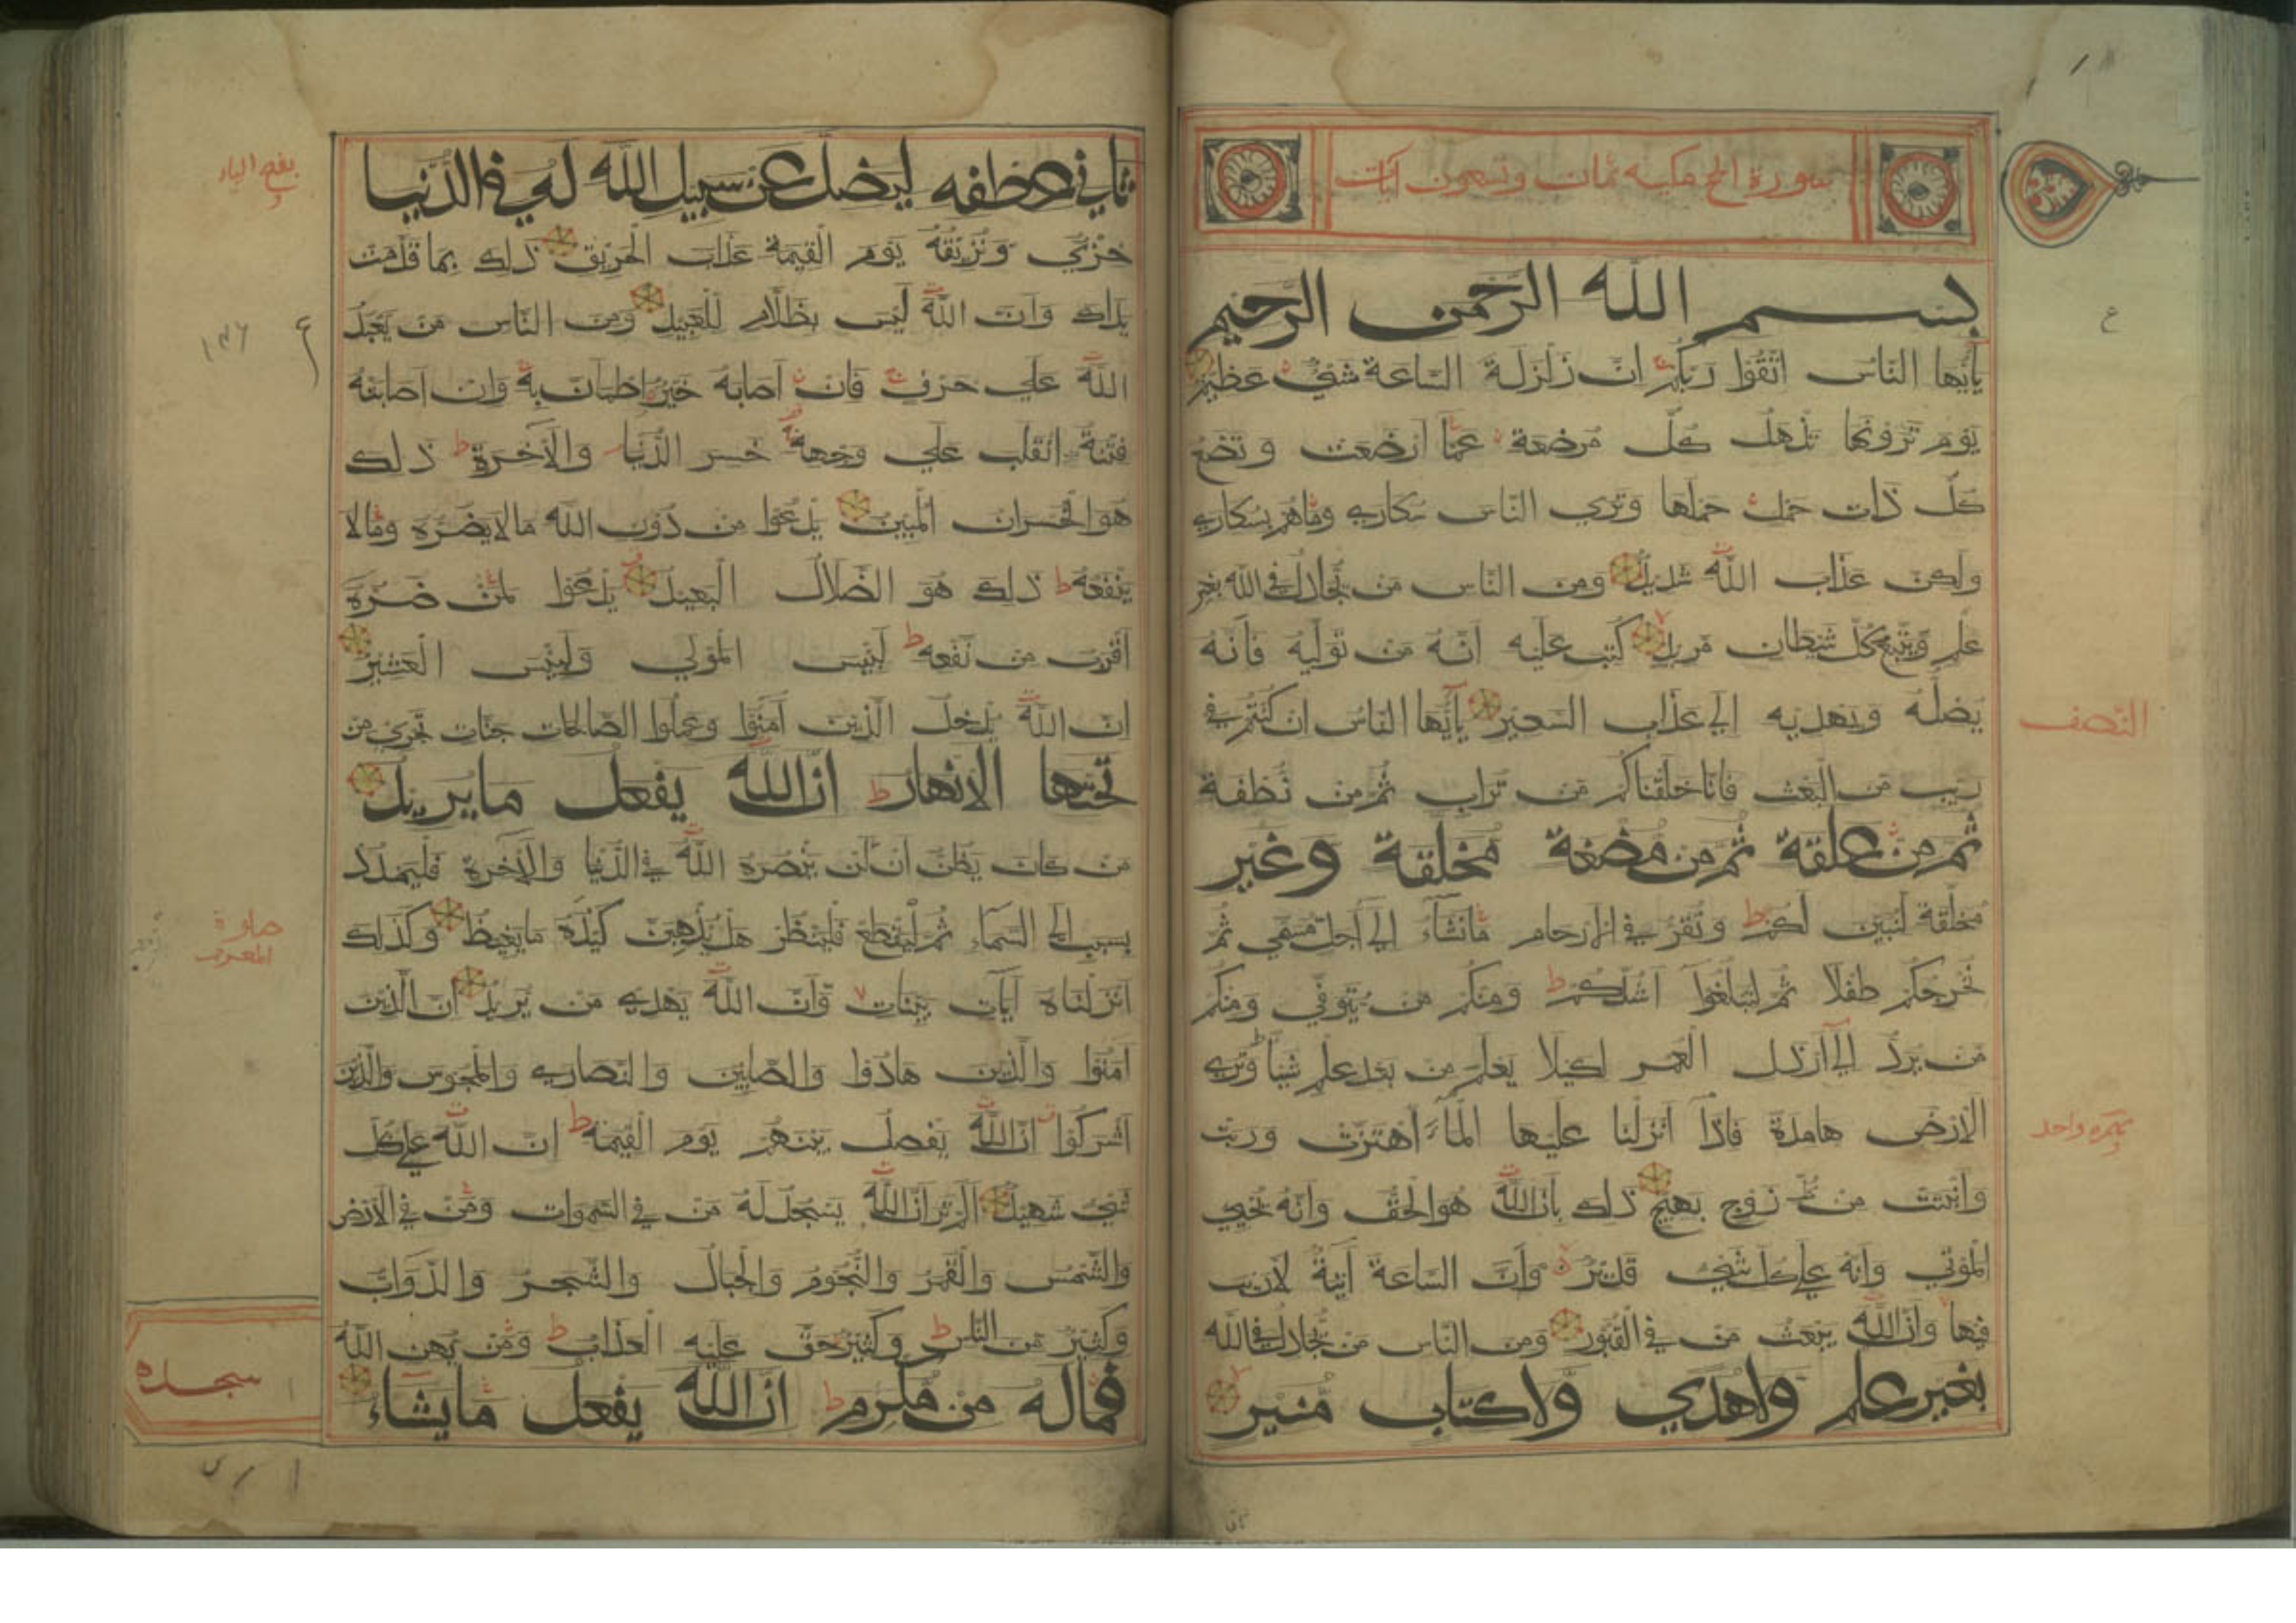 سورة الحج مكية ثمان وتسعون آيات
بسم الله الرحمن الرحيم
يأيها الناس اتقوا ربكم ان زلزلة الساعة شيء عظيم
يوم ترونها تذهل كل مرضعة عما ارضعت وتضع
كل ذات حمل حملها وتري الناس سكاري وماهم بسكاري
ولكن عذاب الله شديد ومن الناس من يجادل في الله بغير
علم ويتبع كل شيطان مريد كتب عليه انه من توليه فانه
يضله ويهديه الي عذاب السعير يأيها الناس ان كنتم في
ريب من البعث فانا خلقناكم من تراب ثم من نطفة
ثم من علقة ثم من مضغة مخلقة وغير
مخلقة لنبين لكم ونقر في الارحام مانشاء الي اجل مسمي ثم
نخرجكم طفلا ثم لتبلغوا اشدكم ومنكم من يتوفي ومنكم
من يرد الي ارذل العمر لكيلا يعلم من بعد علم شيئا وتري
الارض هامدة فاذا انزلنا عليها الماء اهتزت وربت
وانبتت من كل زوج بهيج ذلك بان الله هو الحق وانه يحيي
الموتي وانه علي كل شيء قدير وان الساعة آتية لاريب
فيها وان الله يبعث من في القبور ومن الناس من يجادل في الله
بغير علم ولاهدي ولا كتاب منير
ع
النصف
ثاني عطفه ليضل عن سبيل الله له في الدنيا
خزي ونذيقه يوم القيمة عذاب الحريق ذلك بما قدمت
يداك وان الله ليس بظلام للعبيد ومن الناس من يعبد
الله علي حرف فان اصابه خير اطمان به وان اصابته
فتنة انقلب علي وجهه خسر الدنيا والآخرة ذلك
هو الخسران المبين يدعوا من دون الله مالايضره ومالا
ينفعه ذلك هو الضلال البعيد يدعوا لمن ضره
اقرب من نفعه لبئس المولي ولبئس العشير
ان الله يدخل الذين آمنوا وعملوا الصالحات جنات تجري من
تحتها الانهار ان الله يفعل مايريد
من كان يظن ان لن ينصره الله في الدنيا والآخرة فليمدد
بسبب الي السماء ثم ليقطع فلينظر هل يذهبن كيده مايغيظ وكذلك
انزلناه آيات بينات وان الله يهدي من يريد ان الذين
امنوا والذين هادوا والصابين والنصاري والمجوس والذين
اشركوا ان الله يفصل بينهم يوم القيمة ان الله علي كل
شيء شهيد الم تر ان الله يسجد له من في السموات ومن في الارض
والشمس والقمر والنجوم والجبال والشجر والدواب
وكثير من الناس وكثير حق عليه العذاب ومن يهن الله
فماله من مكرم ان الله يفعل مايشاء
بفتح الياء
ع
سجده